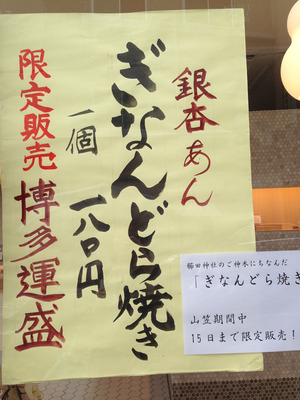 銀杏あん
ぎなんどら焼き
一個 一八〇円
限定販売 博多運盛
櫛田神社のご神木にちなんだ
「ぎなんどら焼き
山笠期間中
15日まで限定販売！